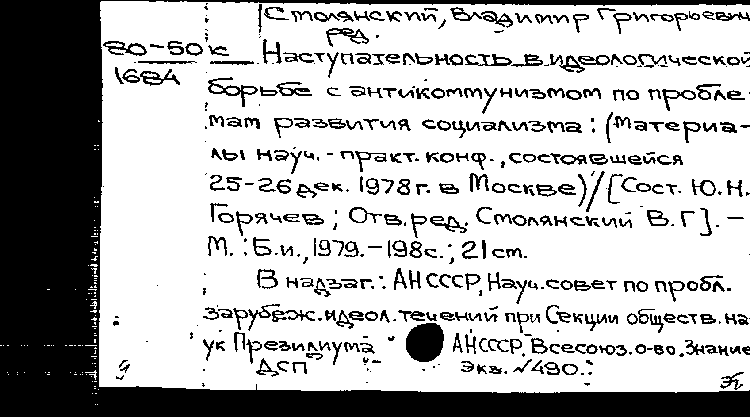 Смолянский, Владимир Григорьевич
ред.
80-50к
1684
Наступательность в идеологической
борьбе с антикоммунизмом по пробле-
мам развития социализма: (материа-
лы науч.-практ. конф., состоявшейся
25-26 дек. 1978 г. в Москве)/[Сост. Ю.Н.
Горячев; Отв. ред. Смолянский В.Г]. –
М.: Б.и., 1979.-198с.; 21 cm.
В надзаг.: АН СССР, Науч. совет по пробл.
зарубеж. идеол. течений при Секции обществ. на-
ук Президиума АН СССР, Всесоюз. о-во. Знание
ДСП Экз. №490.